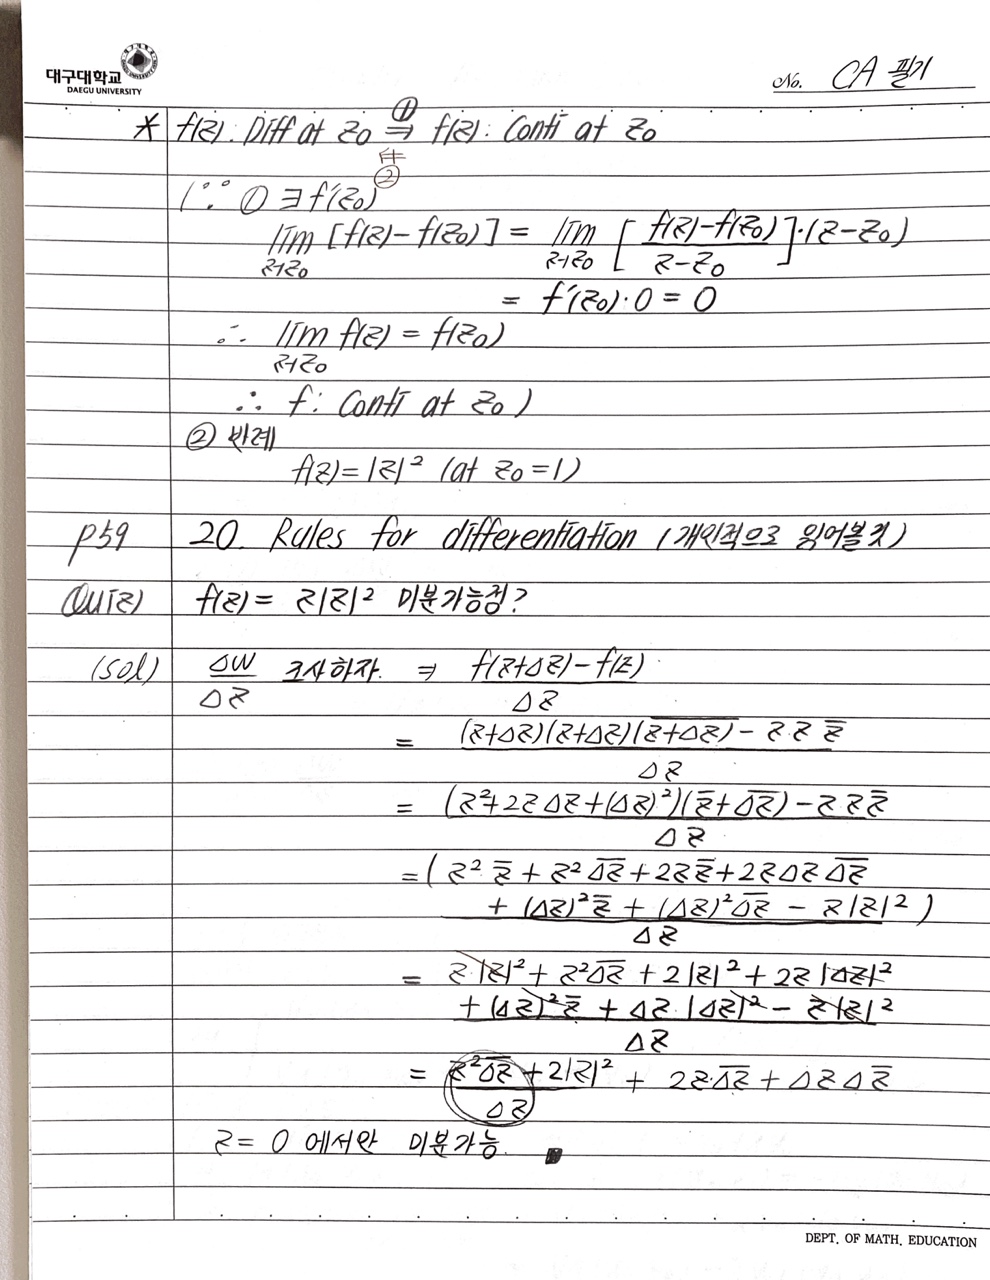 대구대학교
DAEGU UNIVERSITY
No. CA 필기
* f(z) : Diff at z₀ ①⇒ f(z) : Conti at z₀
⇍ ②
(∵ ① ∃f′(z₀)
lim_{z→z₀} [f(z)-f(z₀)] = lim_{z→z₀} [ (f(z)-f(z₀))/(z-z₀) ]·(z-z₀)
= f′(z₀)·0 = 0
∴ lim_{z→z₀} f(z) = f(z₀)
∴ f : Conti at z₀ )
② 반례
f(z)=|z|² (at z₀=1)
p59 20. Rules for differentiation (개인적으로 읽어볼 것)
Quiz) f(z) = z|z|² 미분가능점?
(sol) Δw/Δz 조사하자. ⇒ (f(z+Δz)-f(z))/Δz
= ((z+Δz)(z+Δz)(z̅+̅Δ̅z̅) - z z z̅)/Δz
= ((z²+2zΔz+(Δz)²)(z̅+Δ̅z̅) - z z z̅)/Δz
= ( z² z̅ + z² Δ̅z̅ + 2z z̅ + 2zΔz Δ̅z̅
+ (Δz)² z̅ + (Δz)² Δ̅z̅ - z|z|² ) / Δz
= z·|z|² + z² Δ̅z̅ + 2|z|² + 2z |Δz|²
+ (Δz)² z̅ + Δz·|Δz|² - z|z|² / Δz
= z² Δ̅z̅/Δz + 2|z|² + 2z·Δ̅z̅ + ΔzΔz̅
z = 0 에서만 미분가능.
DEPT. OF MATH. EDUCATION